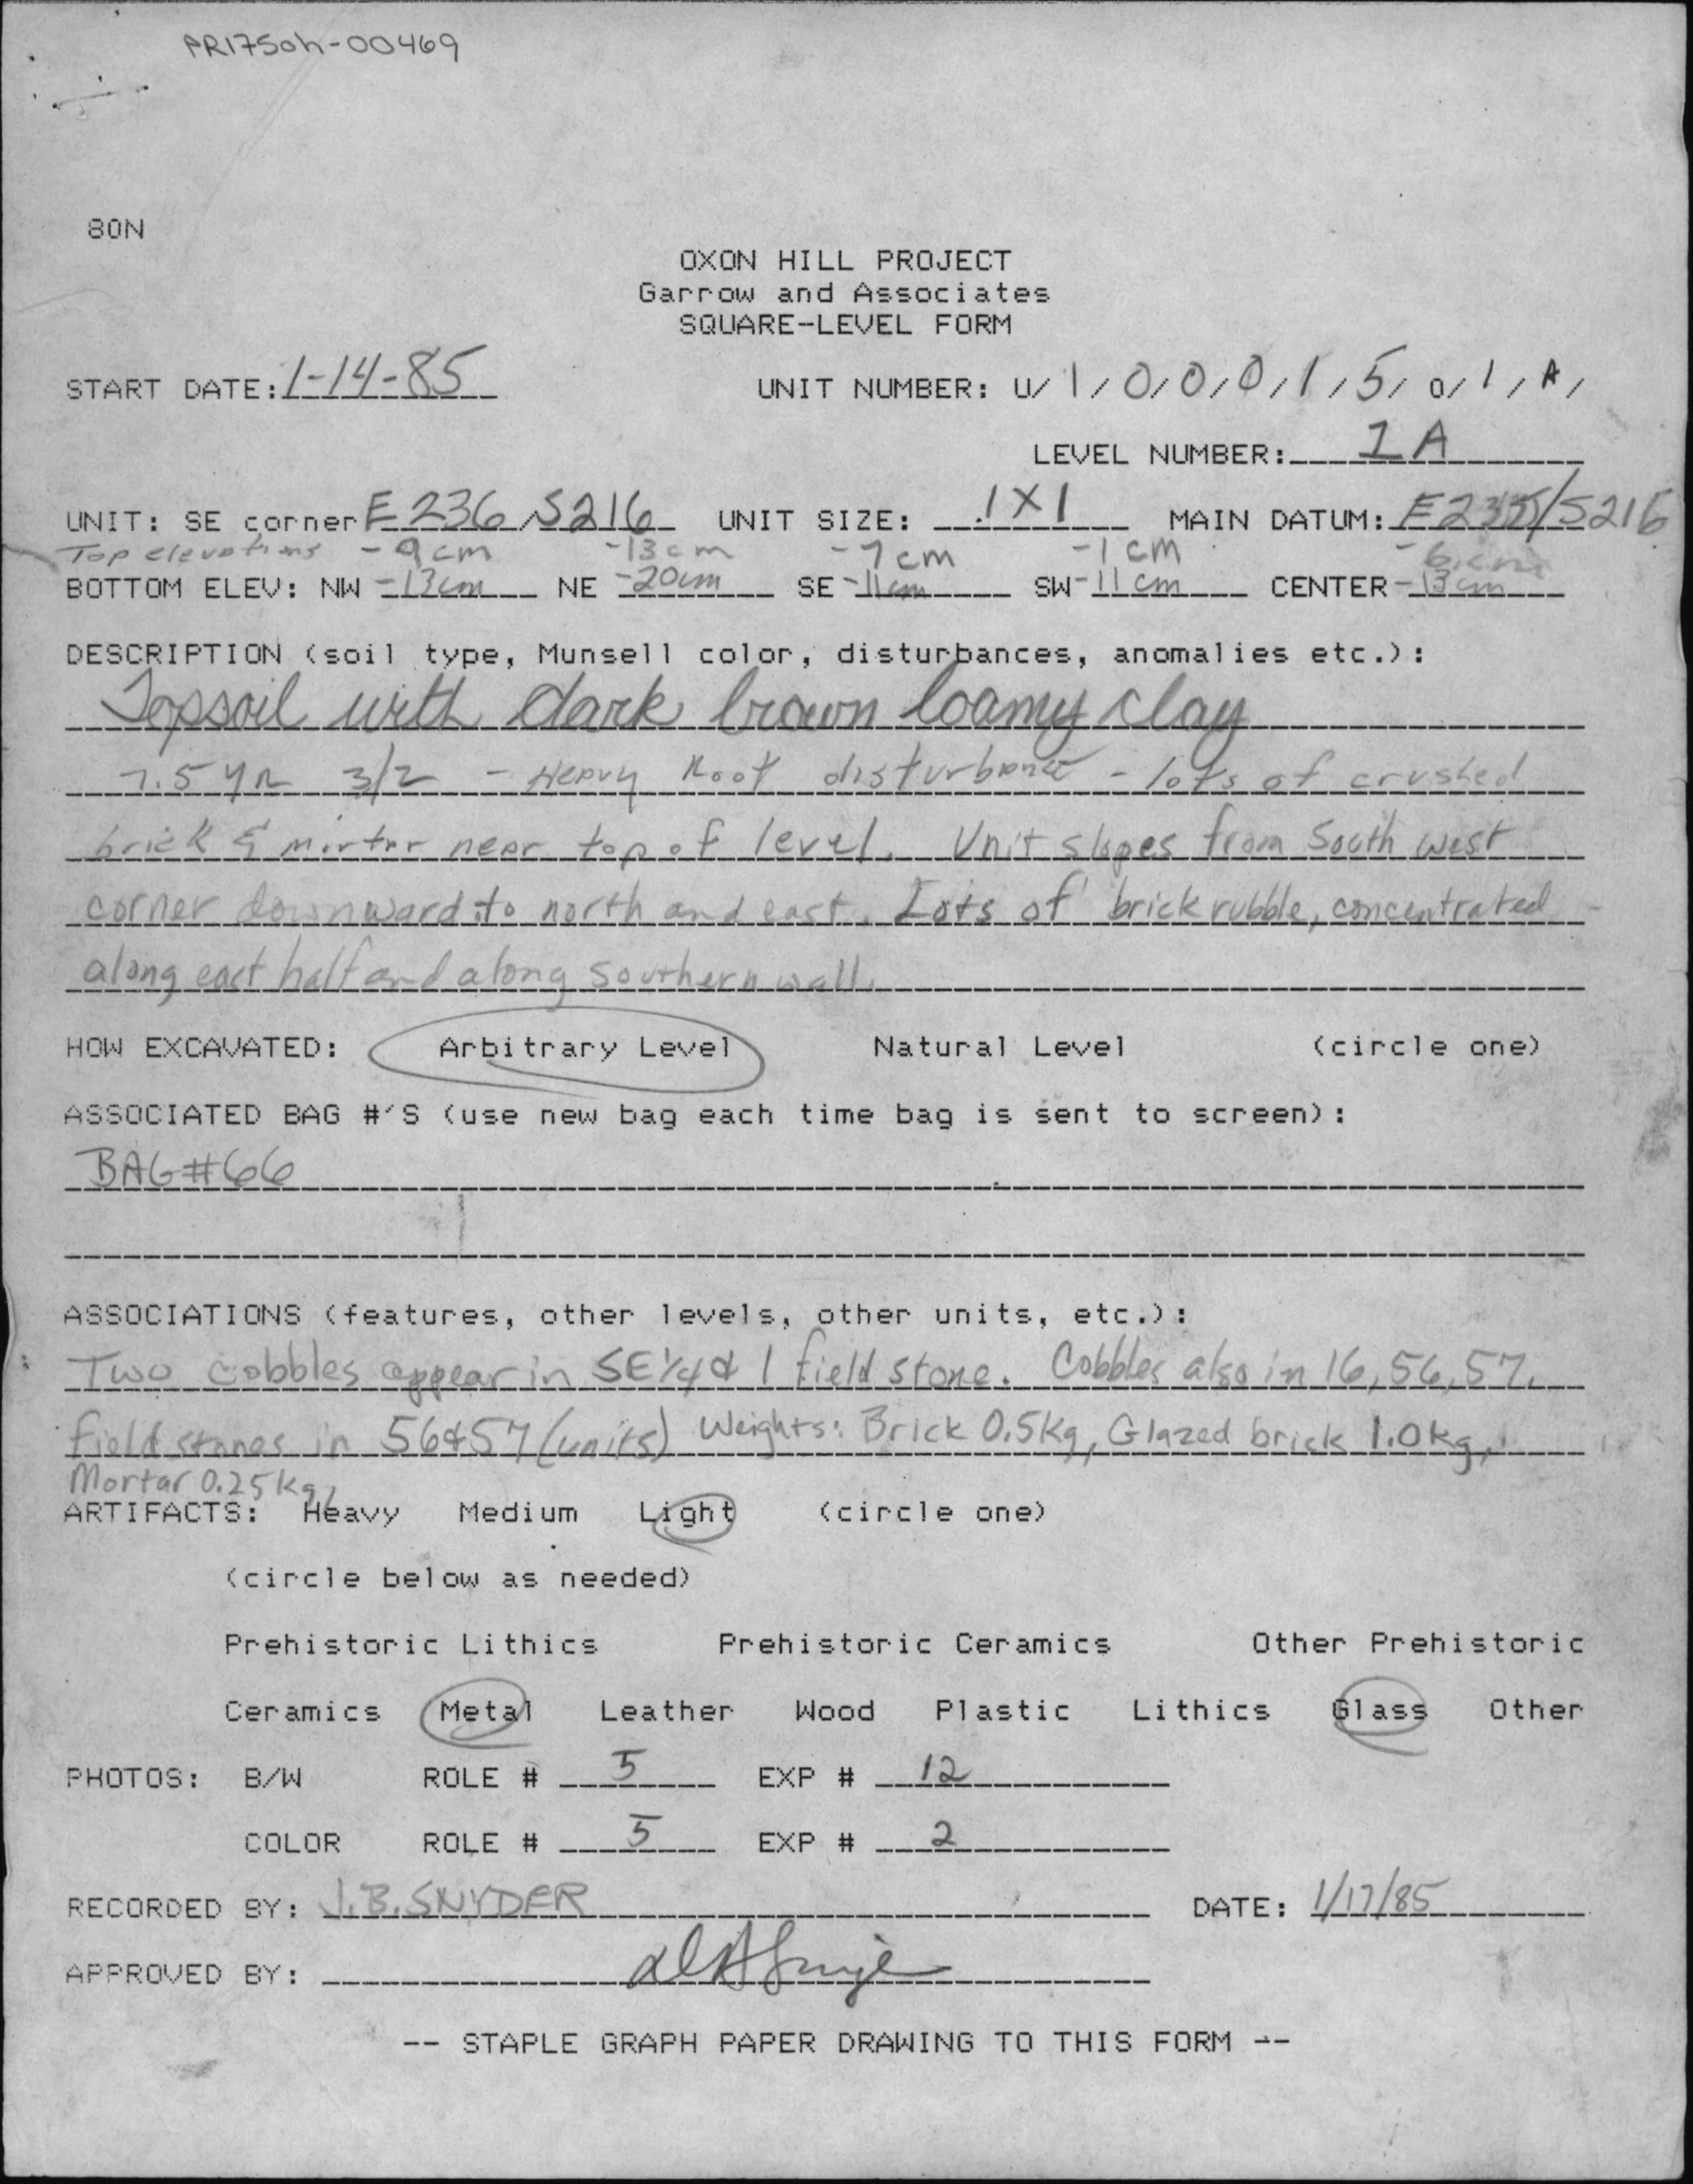 PR175oh-00469
80N
OXON HILL PROJECT
Garrow and Associates
SQUARE-LEVEL FORM
START DATE: 1-14-85 UNIT NUMBER: U/ 1 / 0 / 0 / 0 / 1 / 5 / 0 / 1 / A /
LEVEL NUMBER: 1A
UNIT: SE corner E 236 S216 UNIT SIZE: 1X1 MAIN DATUM: /S216
Top elevations -9cm -13cm -7cm -1cm -6cm
BOTTOM ELEV: NW -13cm NE -20cm SE -11cm SW -11cm CENTER -13cm
DESCRIPTION (soil type, Munsell color, disturbances, anomalies etc.):
Topsoil with dark brown loamy clay
7.5 YR 3/2 - Heavy Root disturbance - lots of crushed
brick & mortar near top of level. Unit slopes from South west
corner downward to north and east. Lots of brick rubble, concentrated
along east half and along southern wall.
HOW EXCAVATED: Arbitrary Level Natural Level (circle one)
ASSOCIATED BAG #'S (use new bag each time bag is sent to screen):
BAG#66
ASSOCIATIONS (features, other levels, other units, etc.):
Two cobbles appear in SE 1/4 & 1 field stone. Cobbles also in 16, 56, 57.
field stones in 56&57 (units) Weights: Brick 0.5Kg, Glazed brick 1.0kg,
Mortar 0.25kg,
ARTIFACTS: Heavy Medium Light (circle one)
(circle below as needed)
Prehistoric Lithics Prehistoric Ceramics Other Prehistoric
Ceramics Metal Leather Wood Plastic Lithics Glass Other
PHOTOS: B/W ROLE # 5 EXP # 12
COLOR ROLE # 5 EXP # 2
RECORDED BY: J.B. SNYDER DATE: 1/17/85
APPROVED BY:
-- STAPLE GRAPH PAPER DRAWING TO THIS FORM --